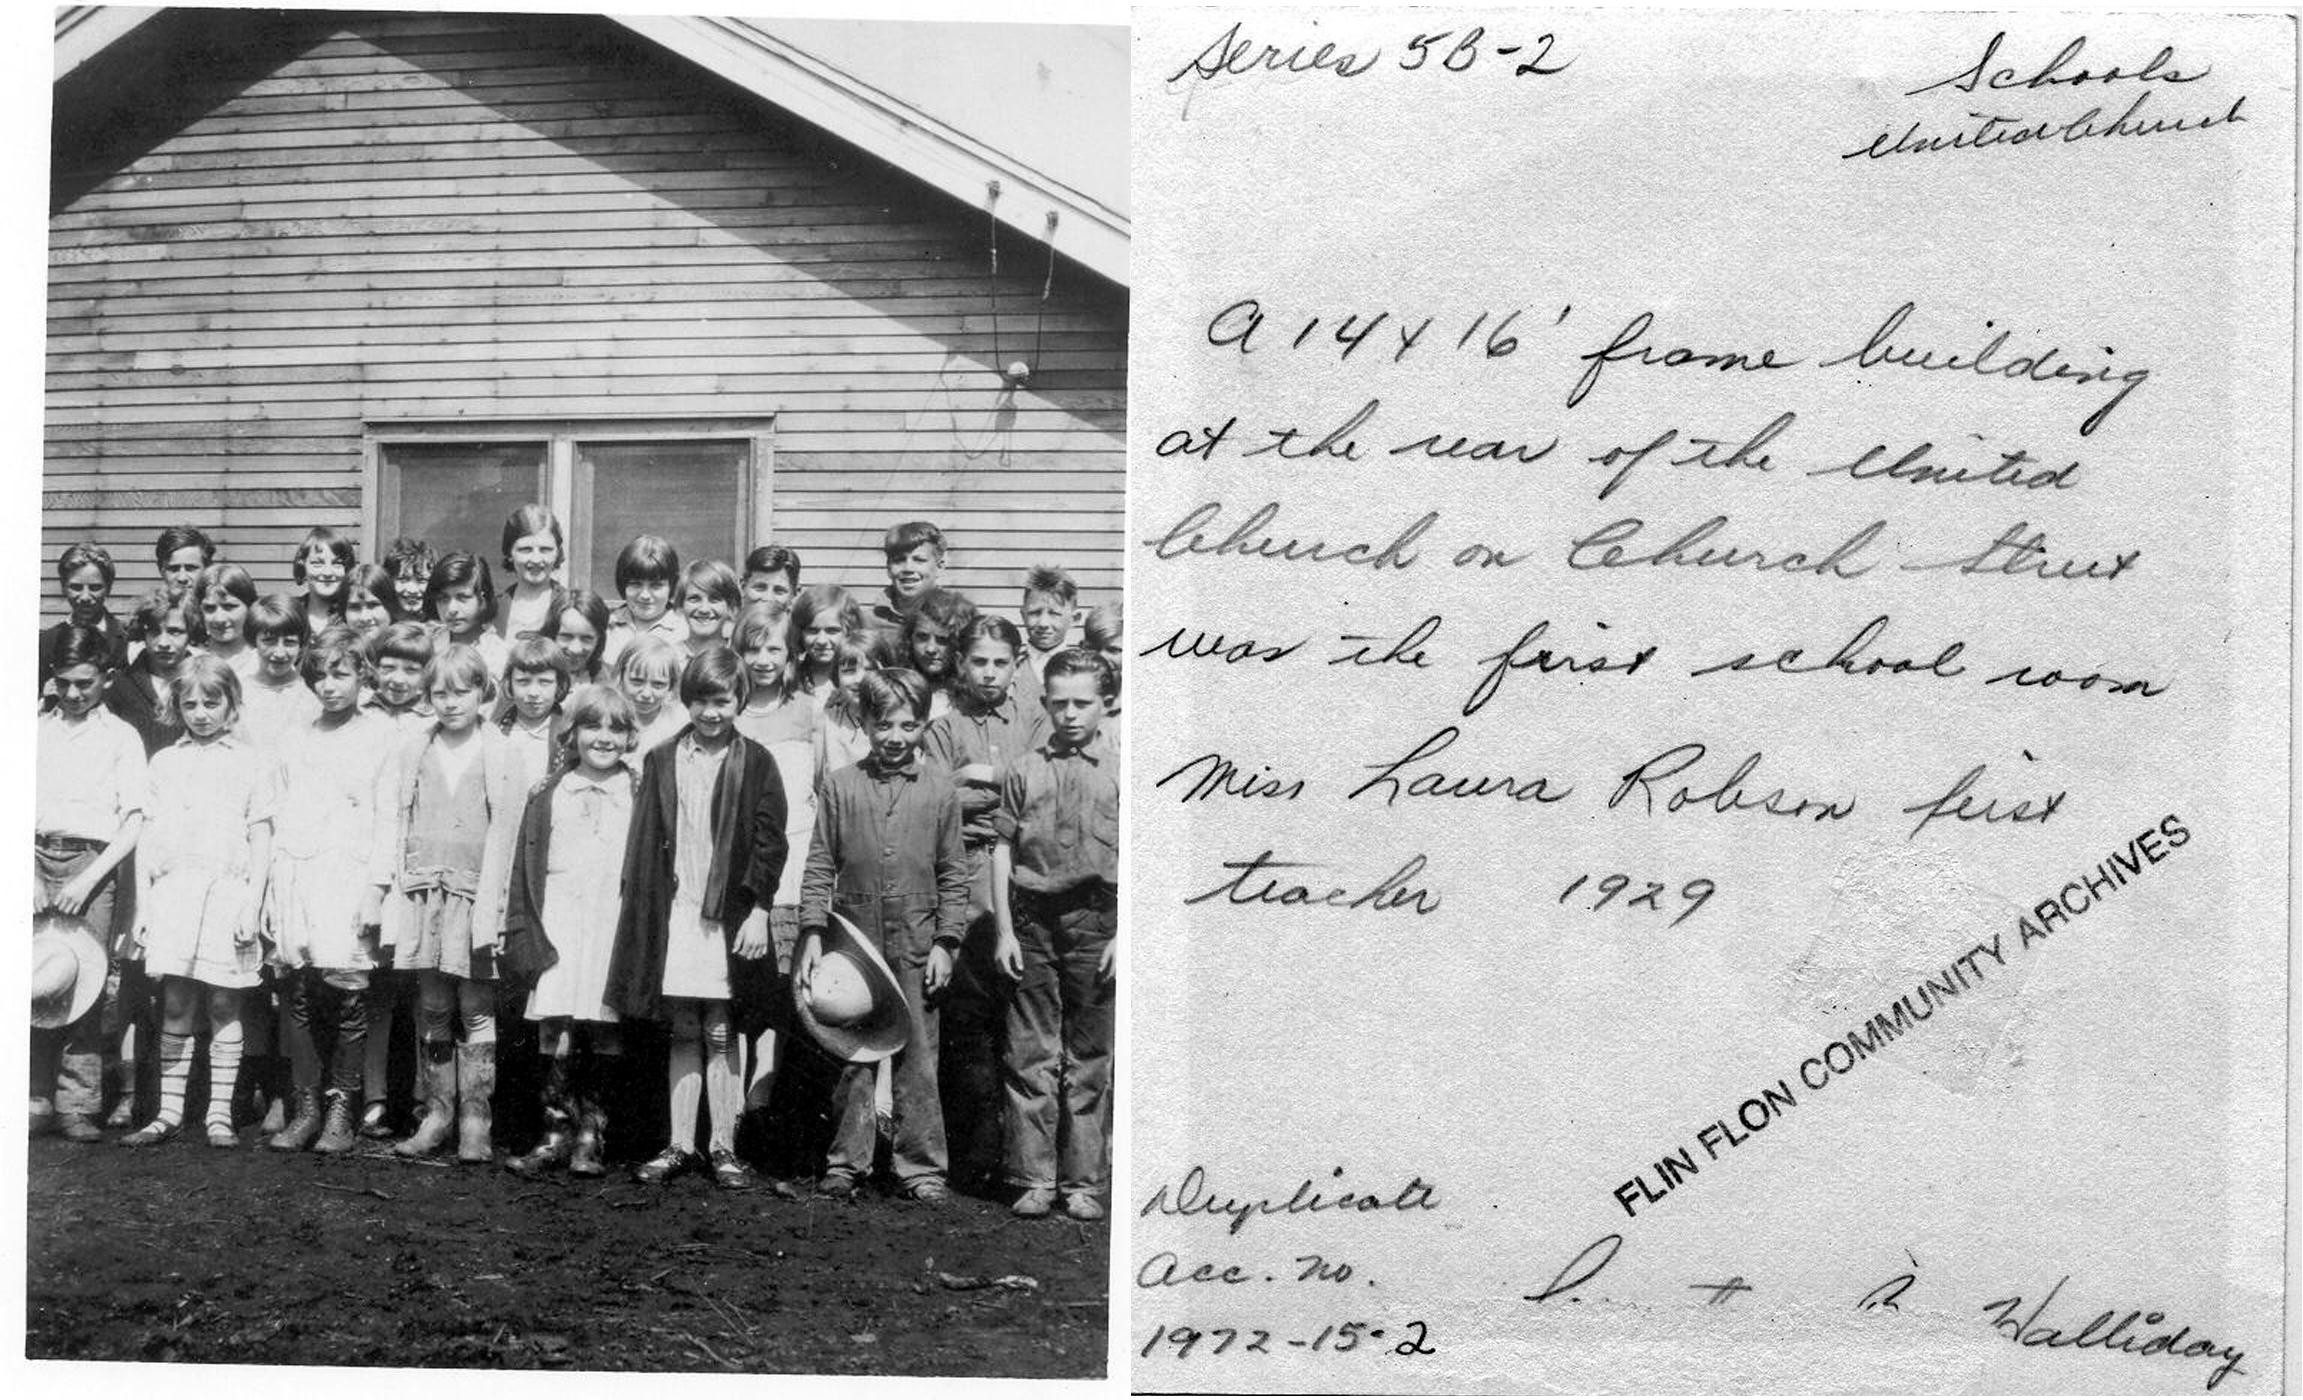 Series 5B-2
Schools
United Church
A 14 x 16' frame building
at the rear of the United
Church on Church Street
was the first school room
Miss Laura Robson first
teacher 1929
FLIN FLON COMMUNITY ARCHIVES
Duplicate
Acc. no.
1972-15-2
Halliday